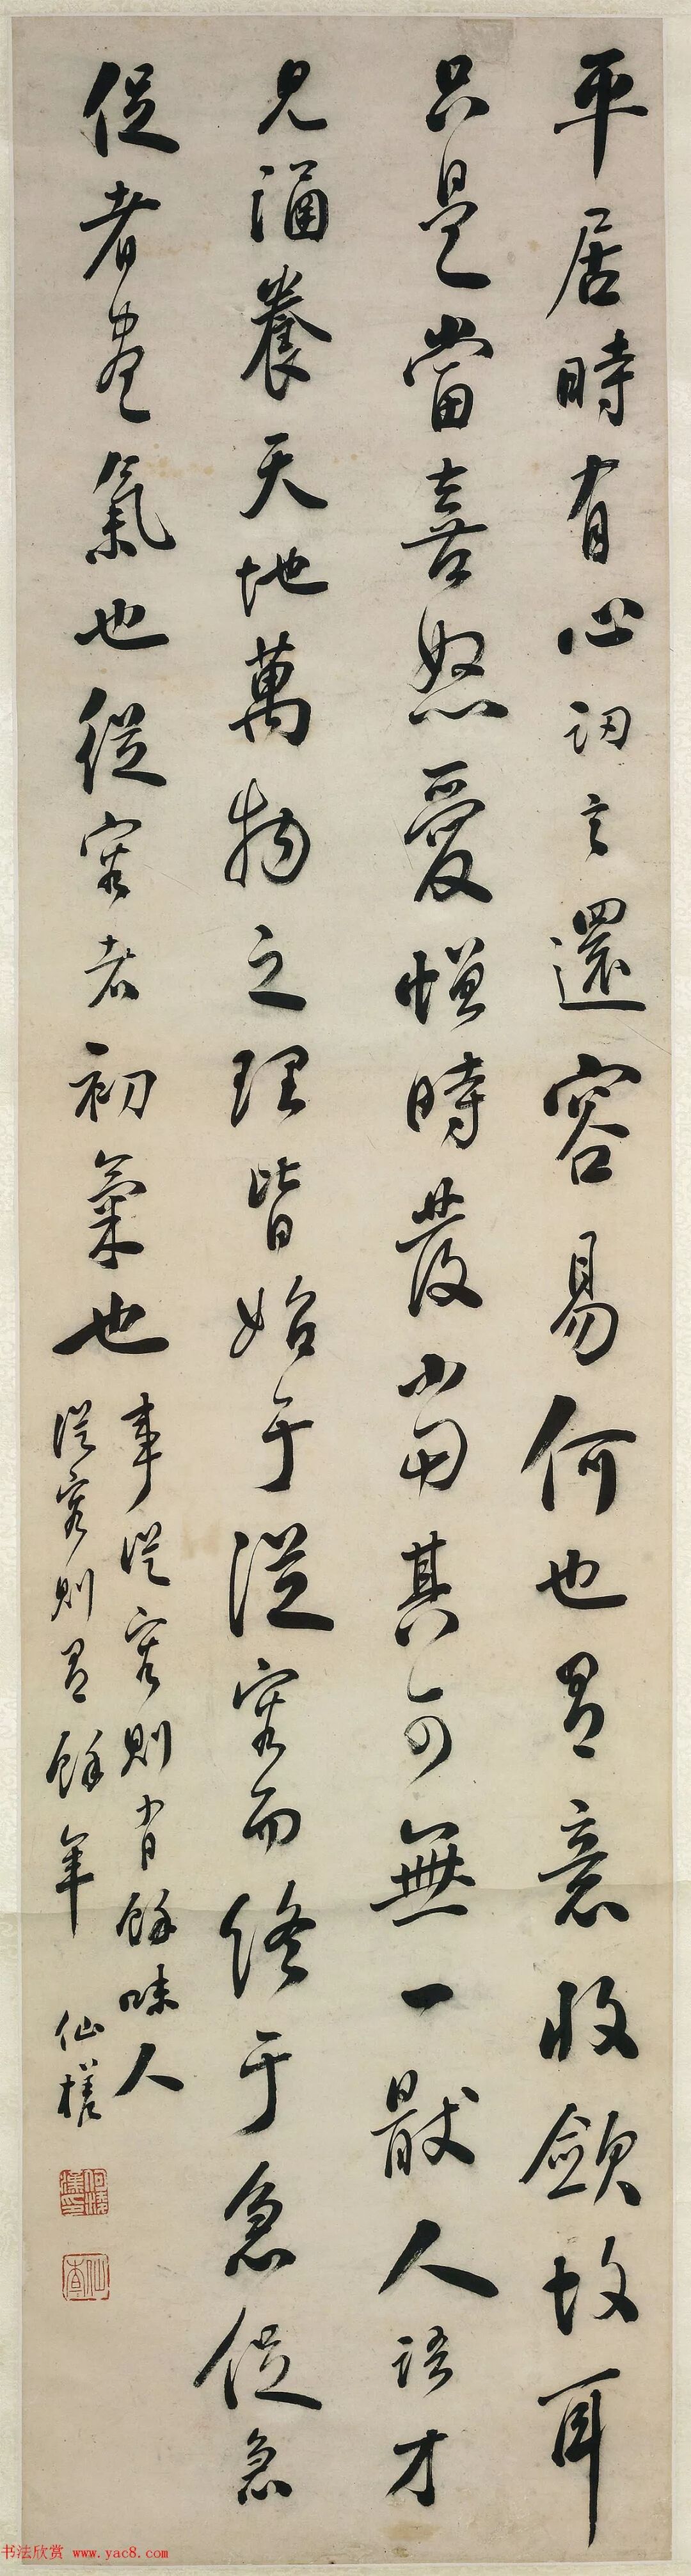 平居時有心訒言還容易何也有意收斂故耳
只是當喜怒愛憎時發當其可無一厭人語才
見涵養天地萬物之理皆始于從容而終于急促急
促者盡氣也從容者初氣也
事從容則有餘味人
從容則有餘年
仙槎
書法欣赏 www.yac8.com